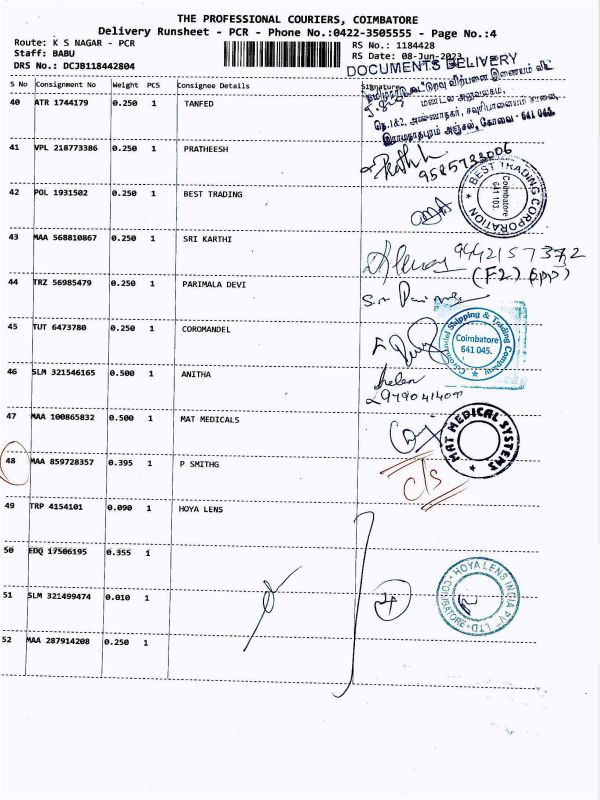 THE PROFESSIONAL COURIERS, COIMBATORE
Delivery Runsheet - PCR - Phone No.:0422-3505555 - Page No.:4
Route: K S NAGAR - PCR RS No.: 1184428
Staff: BABU RS Date: 08-Jun-2023
DRS No.: DCJB118442804 DOCUMENTS DELIVERY
S No Consignment No Weight PCS Consignee Details Signature
40 ATR 1744179 0.250 1 TANFED
மண்டல அலுவலகம்,
41 VPL 218773386 0.250 1 PRATHEESH
42 POL 1931502 0.250 1 BEST TRADING
BEST TRADING CORPORATION Coimbatore 641 103.
43 MAA 568810867 0.250 1 SRI KARTHI
9442157372
44 TRZ 56985479 0.250 1 PARIMALA DEVI
45 TUT 6473780 0.250 1 COROMANDEL
Coromandel Shipping & Trading Company Coimbatore 641 045.
46 SLM 321546165 0.500 1 ANITHA
helen
47 MAA 100865832 0.500 1 MAT MEDICALS
MAT MEDICAL SYSTEMS
48 MAA 859728357 0.395 1 P SMITHG
C/S
49 TRP 4154101 0.090 1 HOYA LENS
50 EDQ 17506195 0.355 1
51 SLM 321499474 0.010 1
HOYA LENS INDIA PVT LTD COIMBATORE
52 MAA 287914208 0.250 1